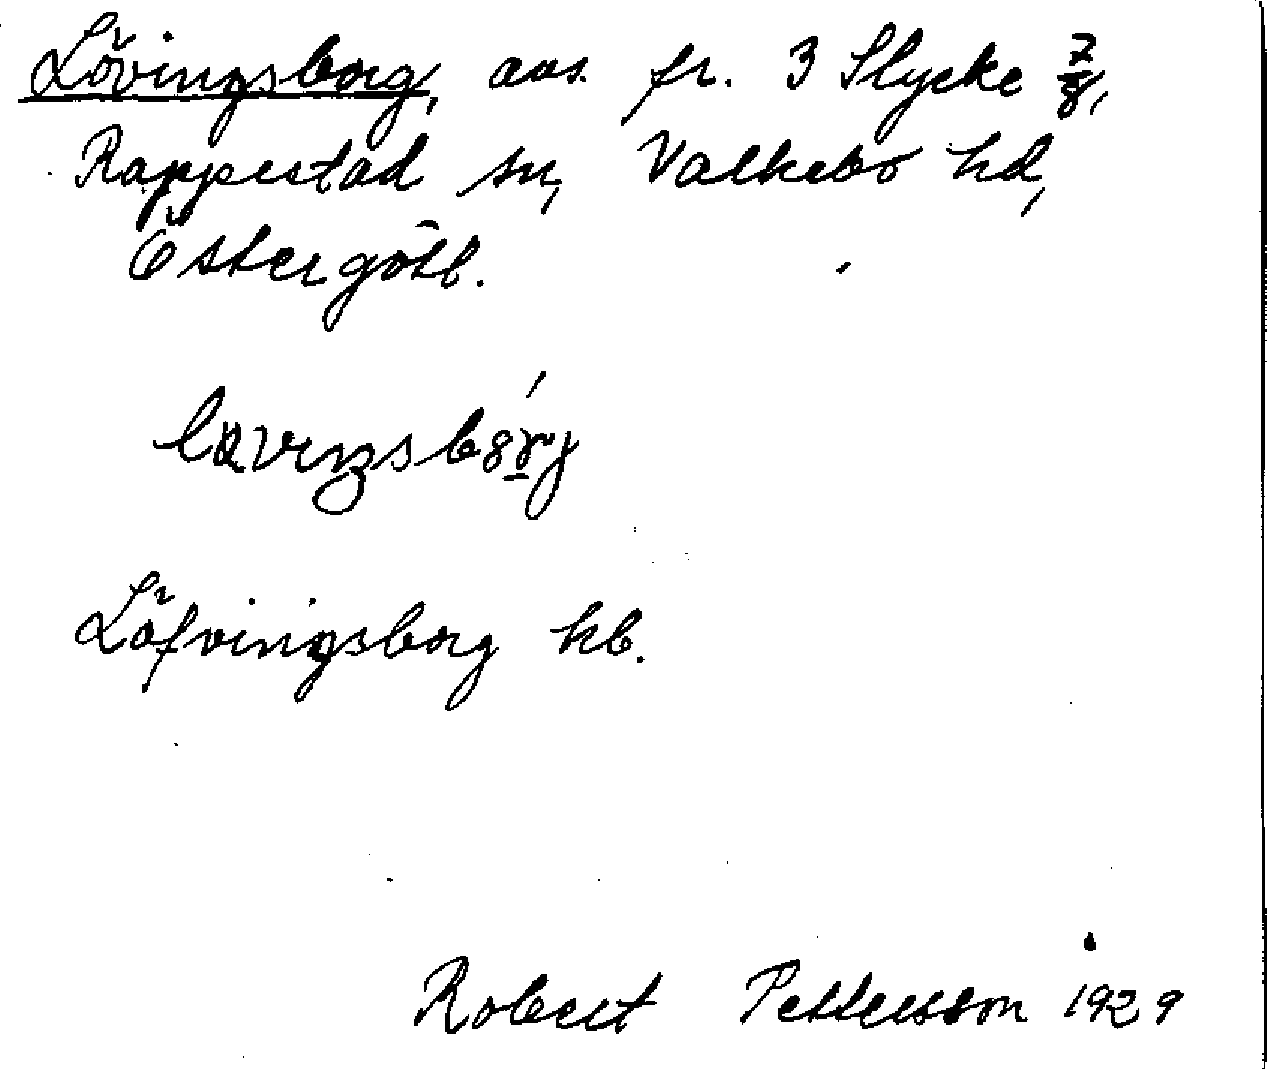 Lövingsborg, avs. fr. 3 Slycke 7/8,
Rappestad sn, Valkebo hd,
Östergötl.
Löfvingsborg hb.
Robert Pettersson 1929